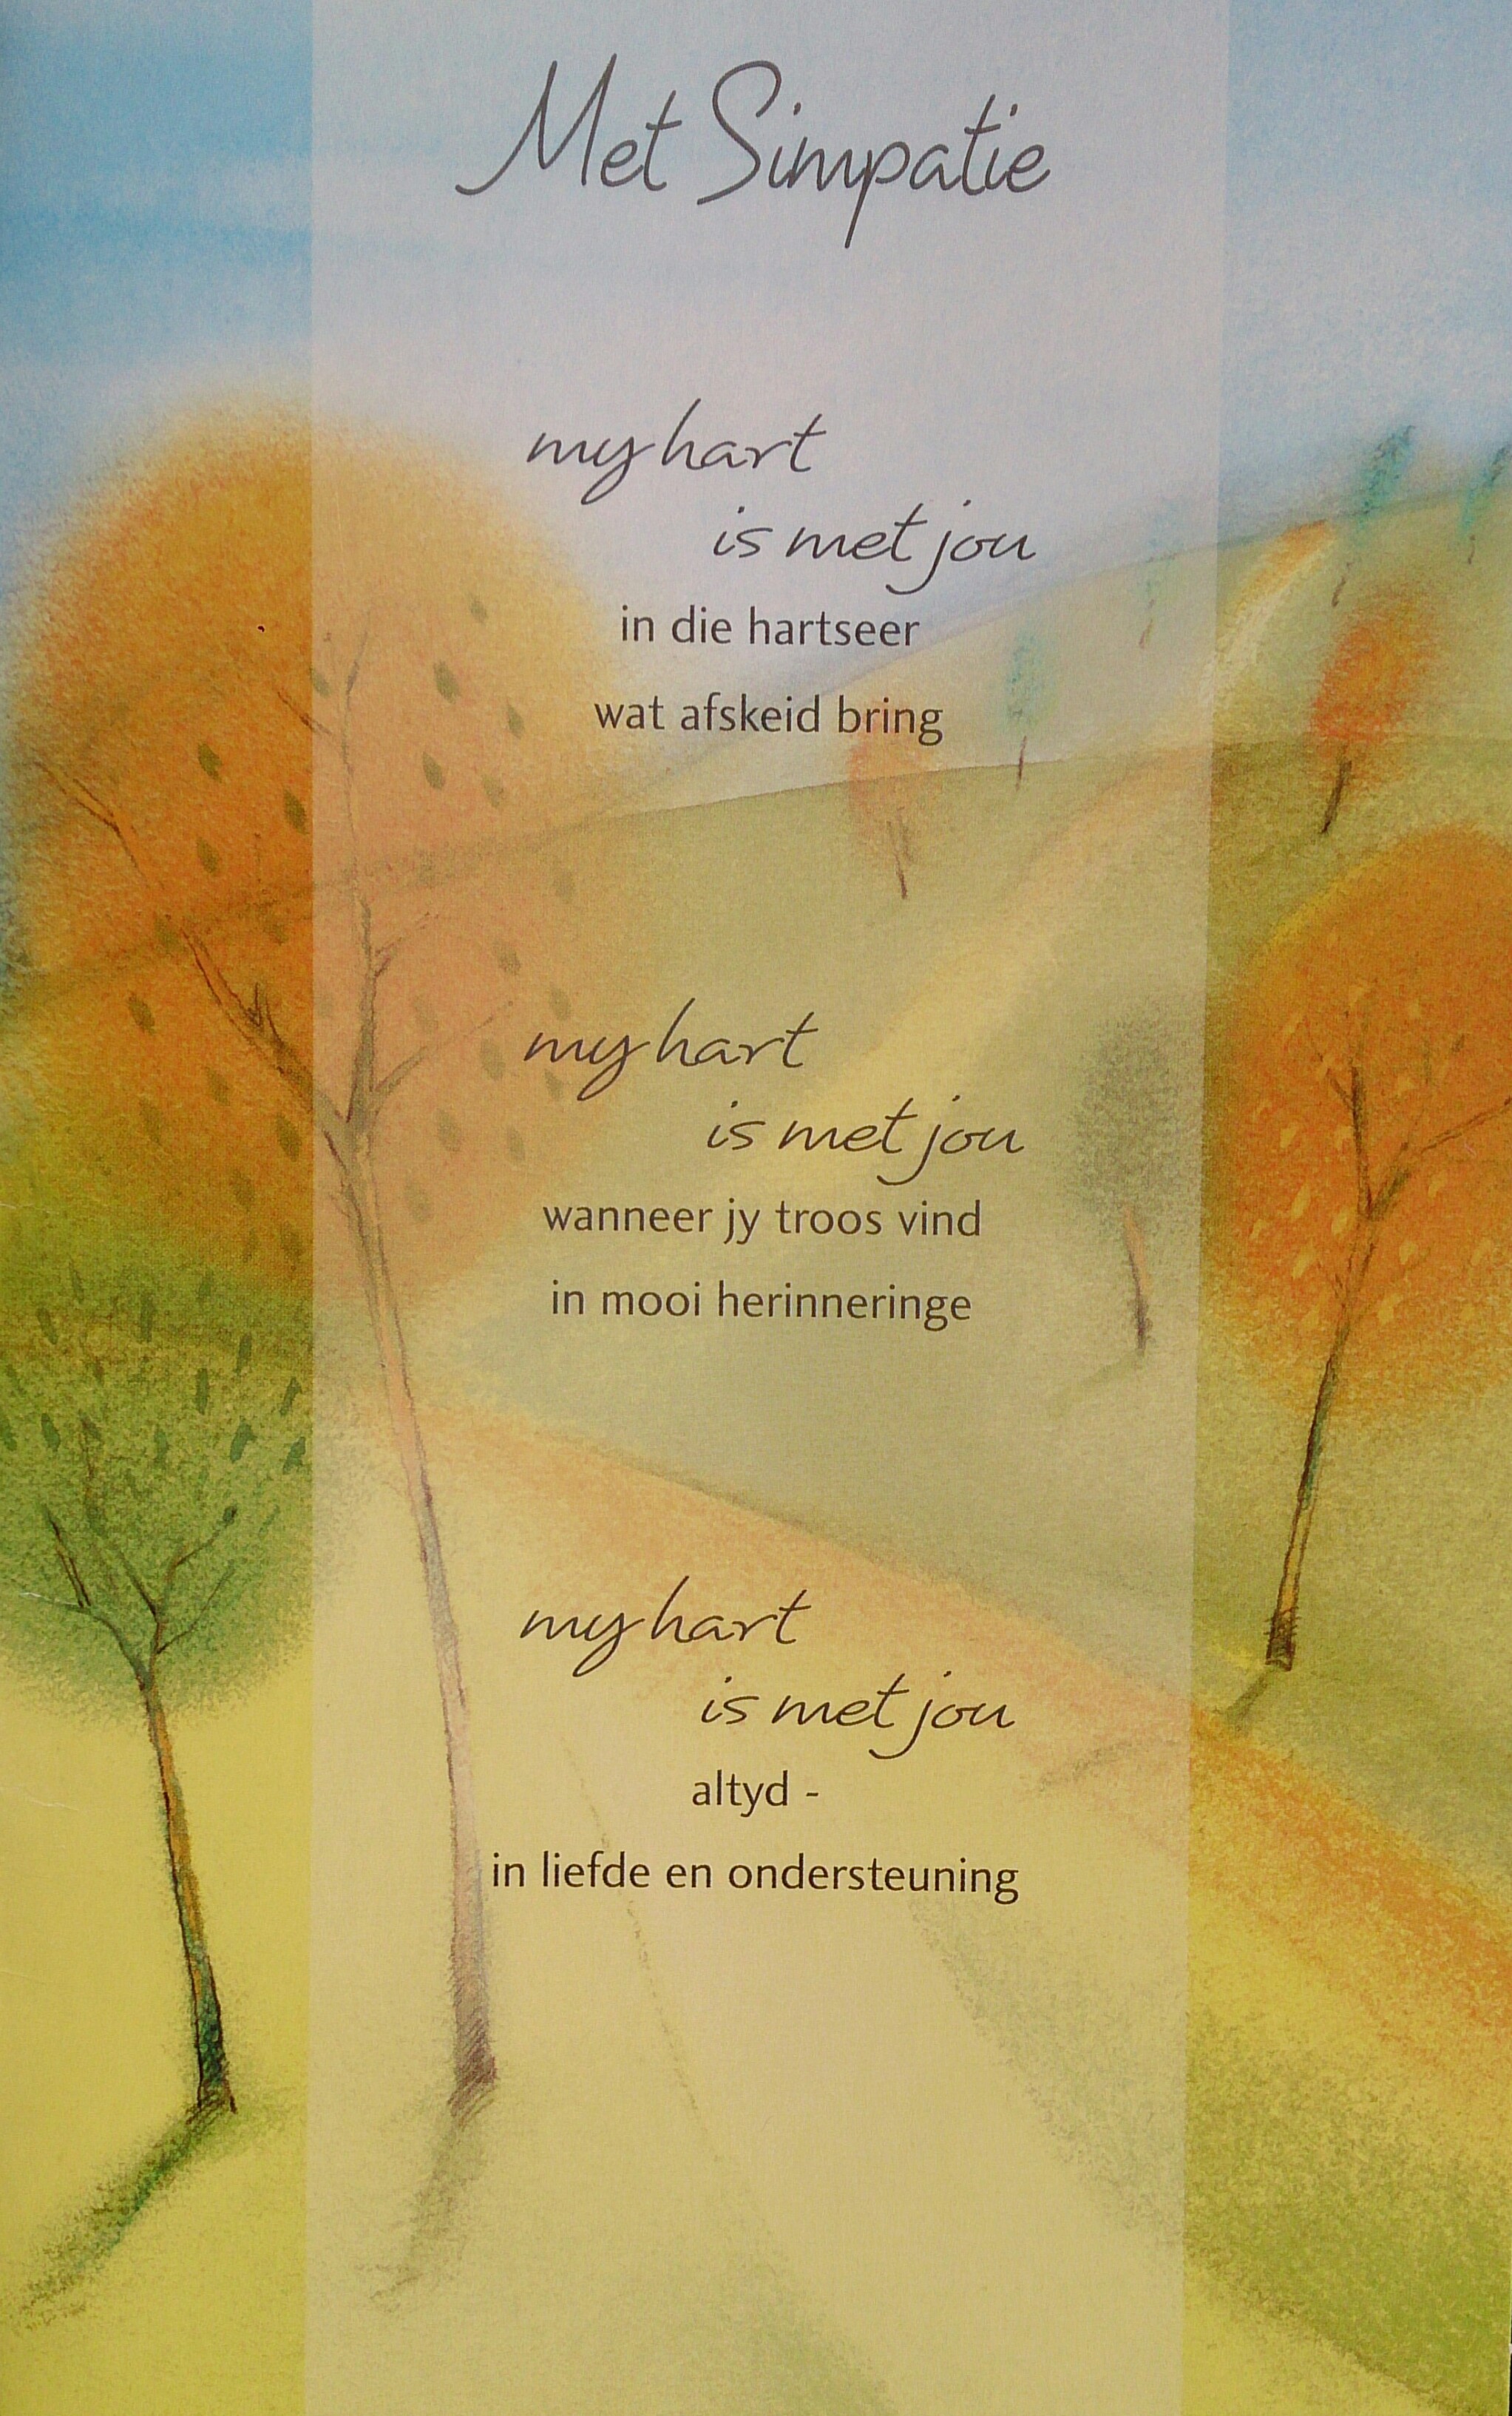 Met Simpatie
my hart
is met jou
in die hartseer
wat afskeid bring
my hart
is met jou
wanneer jy troos vind
in mooi herinneringe
my hart
is met jou
altyd -
in liefde en ondersteuning